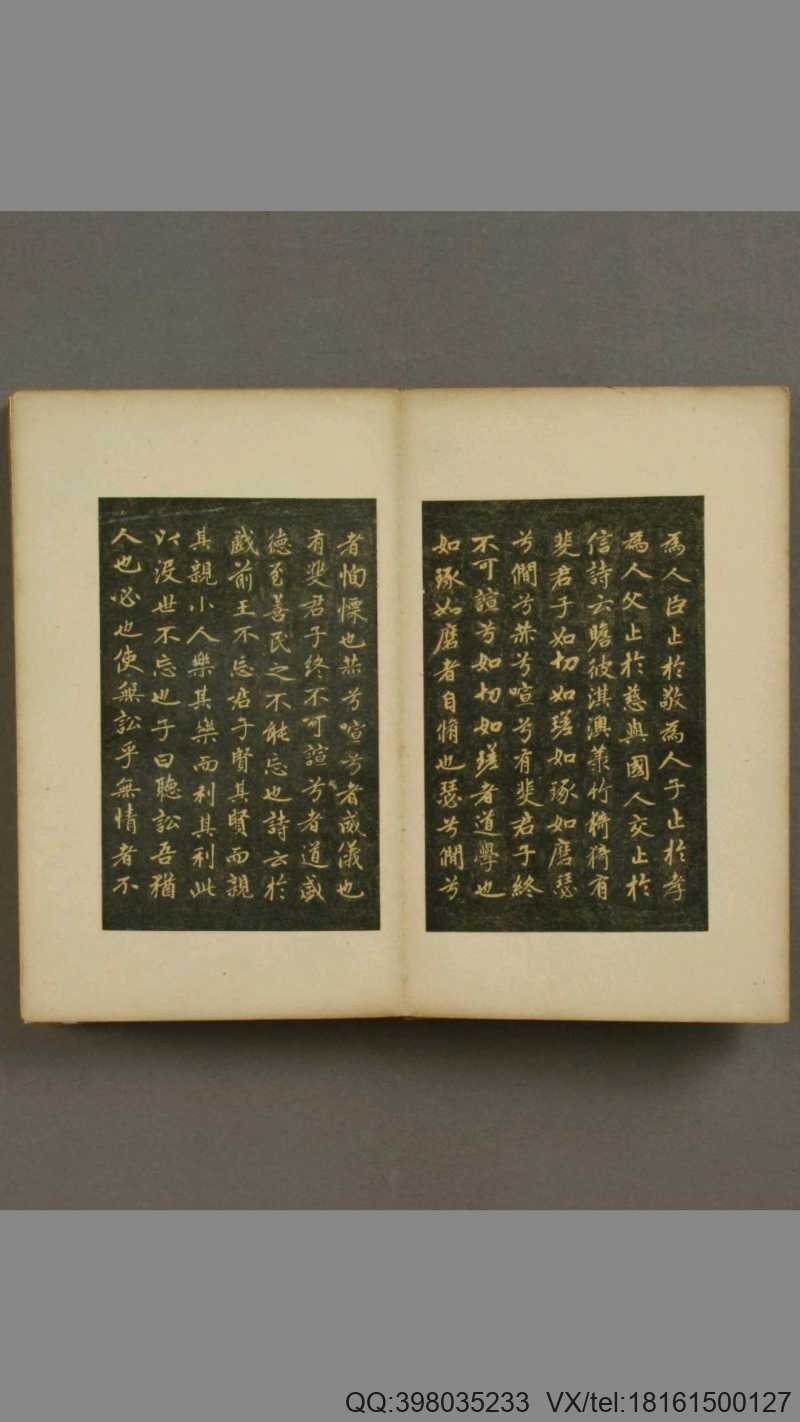 為人臣止扵敬為人子止扵孝
為人父止扵慈與國人交止扵
信詩云瞻彼淇澳菉竹猗猗有
斐君子如切如磋如琢如磨瑟
兮僩兮赫兮喧兮有斐君子終
不可諠兮如切如磋者道學也
如琢如磨者自脩也瑟兮僩兮
者恂慄也赫兮喧兮者威儀也
有斐君子終不可諠兮者道盛
德至善民之不能忘也詩云扵
戯前王不忘君子賢其賢而親
其親小人樂其樂而利其利此
以没世不忘也子曰聽訟吾猶
人也必也使無訟乎無情者不
QQ:398035233 VX/tel:18161500127